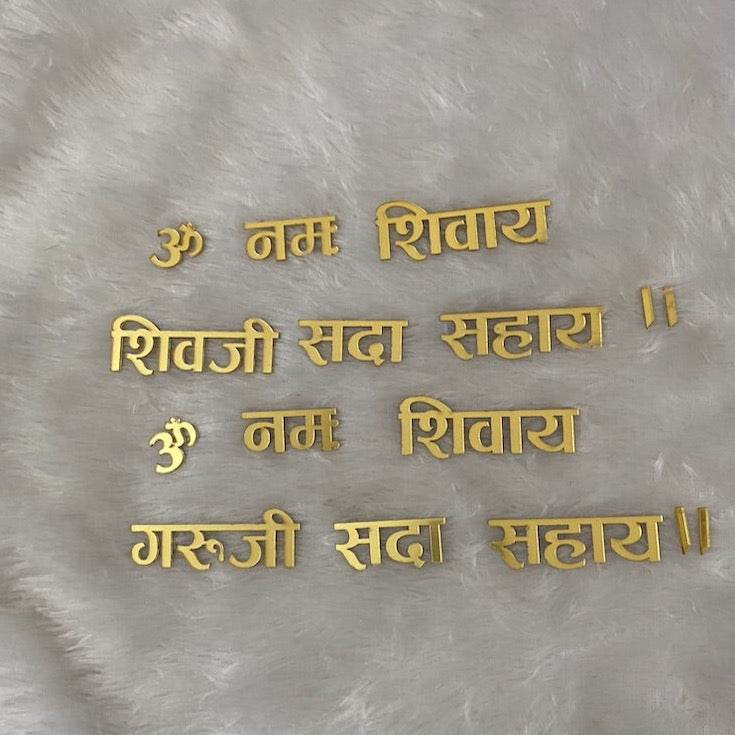 ॐ नमः शिवाय
शिवजी सदा सहाय ॥
ॐ नमः शिवाय
गरूजी सदा सहाय ॥